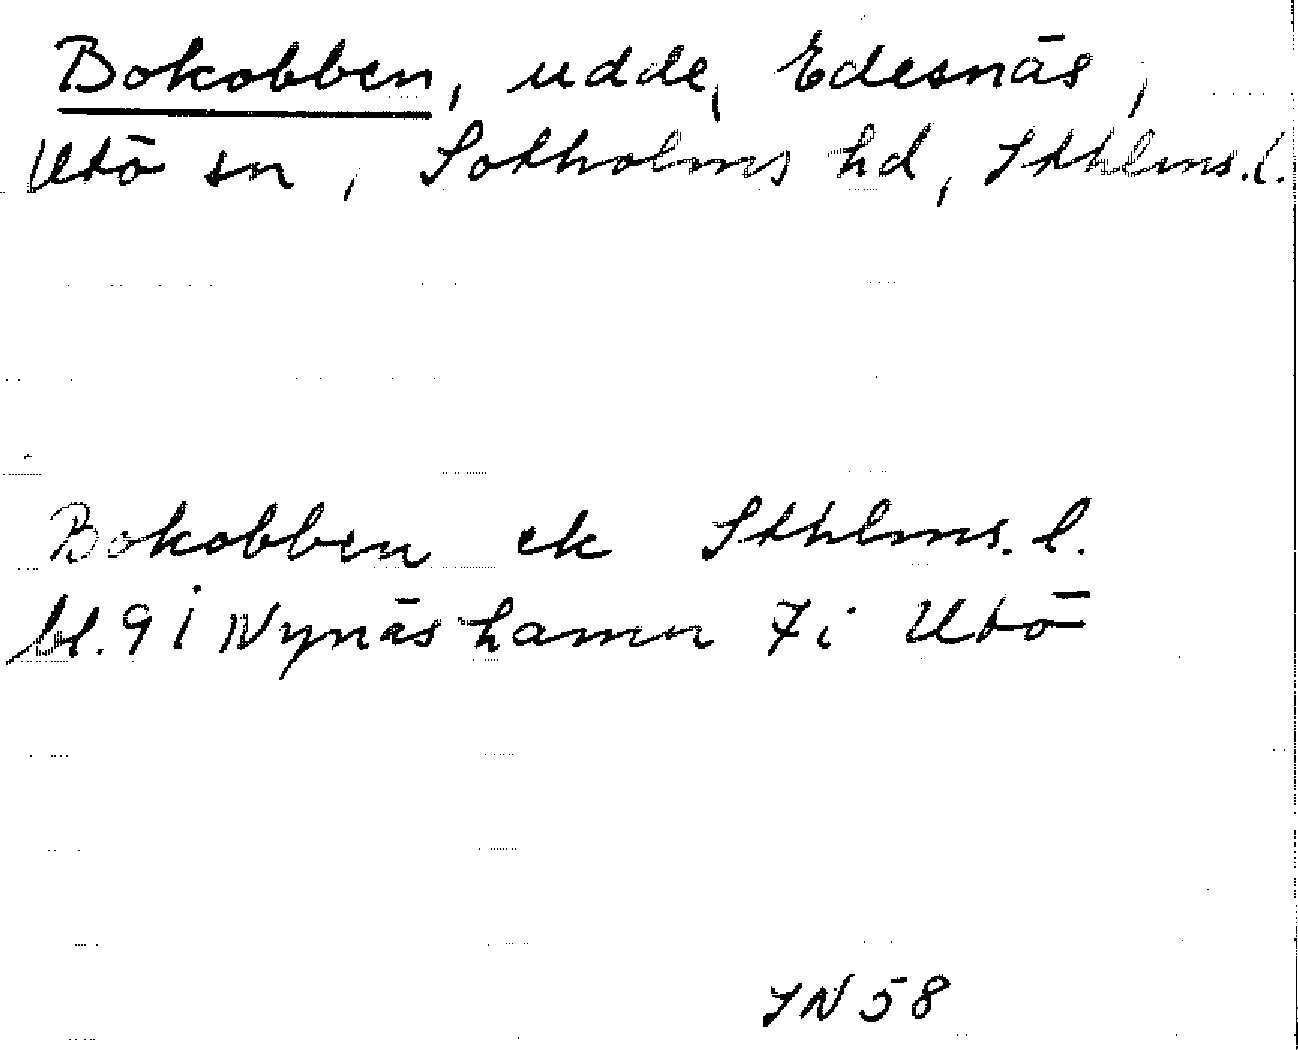 Bokobben, udde, Edesnäs,
Utö sn, Sotholms hd, Sthlms.l.
Bokobben ek Sthlms.l.
bl. 9 i Nynäshamn 7 i Utö
IN 58